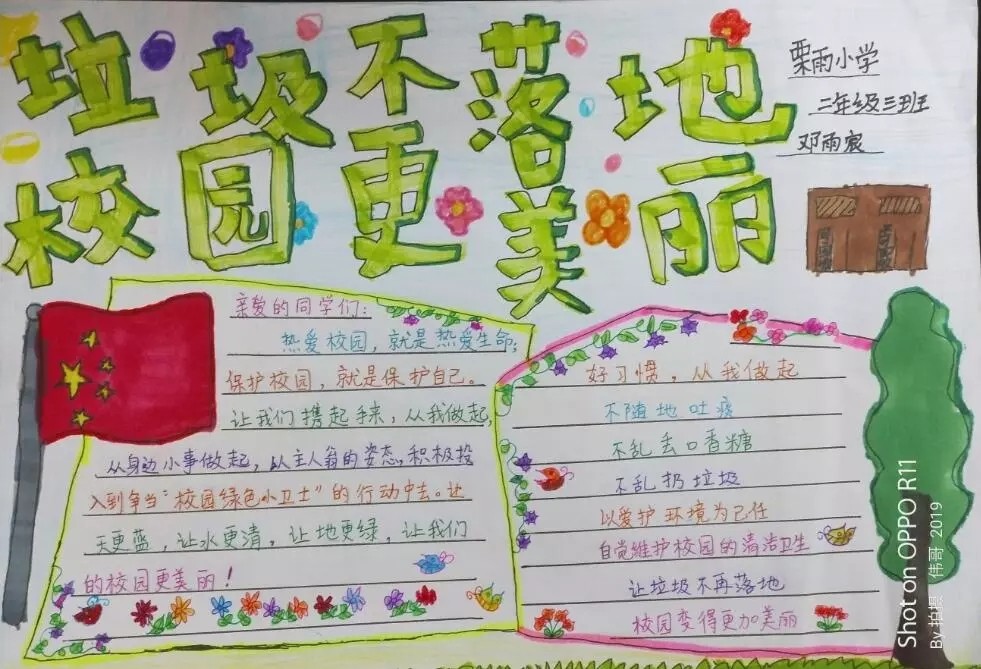 垃圾不落地
校园更美丽
栗雨小学
二年级三班
邓雨宸
亲爱的同学们：
热爱校园，就是热爱生命，
保护校园，就是保护自己。
让我们携起手来，从我做起，
从身边小事做起，以主人翁的姿态，积极投
入到争当“校园绿色小卫士”的行动中去。让
天更蓝，让水更清，让地更绿，让我们
的校园更美丽！
好习惯，从我做起
不随地吐痰
不乱丢口香糖
不乱扔垃圾
以爱护环境为己任
自觉维护校园的清洁卫生
让垃圾不再落地
校园变得更加美丽
Shot on OPPO R11
By 拍摄 伟哥 2019